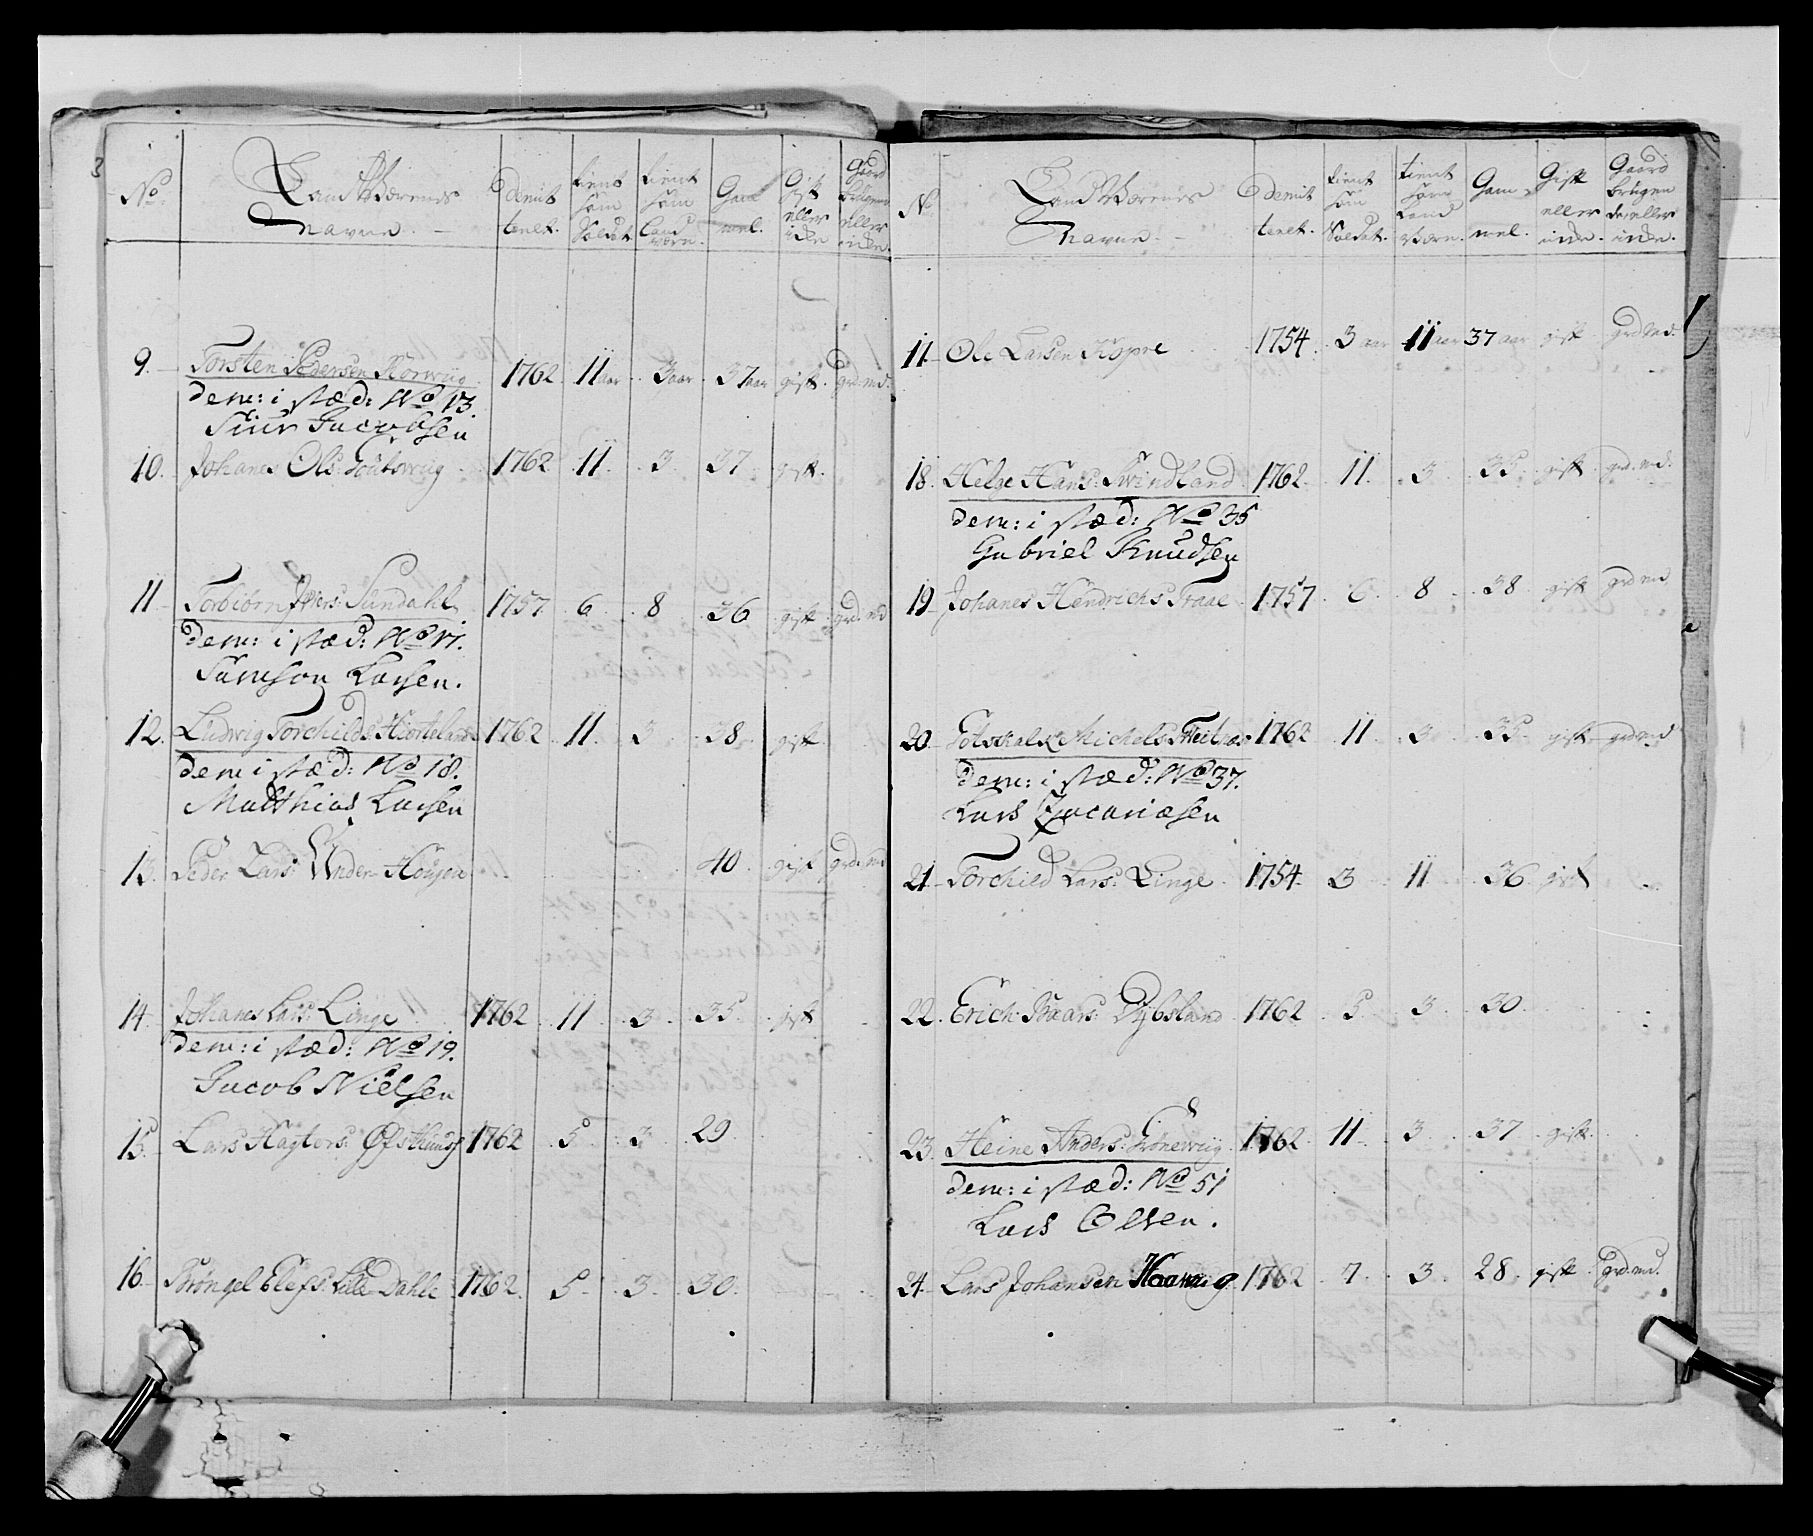 No. Land Værnes Navne. Demit tenlt. tient som Soldat. tient som Land værn. Gam mel. Gift eller icke Gaard
9. Torsten Pedersen Korwiig 1762 11 aar 3 aar 37 aar gift. grd. md.
dem: i stæd: No 13.
Siur Jacobsen
10. Johanes Ols: 1762 11 3 37 gift.
11 Torbiørn Sundahl 1757 6 8 36 gift grd. md
dem: i stæd: No 17.
Samson Larsen.
12. Ludwig Torchilds: Hiorteland 1762 11 3 38 gift
dem i stæd: No 18.
Matthias Larsen
13. Peder Lars: Under Hougen 40 gift grd. md
14. Johanes Lars: Linge 1762 11 3 35 gift
dem: i stæd: No 19.
Jacob Nielsen
15. Lars Hagtors: 1762 5 3 29
16. Brøngel Elefs: Lille Dahle 1762 5 3 30.
No. Land Værnes Navne. Demit tenlt. tient som Soldat. tient som Land Værn. Gam mel. Gift eller inde. Gaard brugen de eller inde.
11. Ole Larsen Kopre 1754. 3 aar 11 aar 37 aar gift grd. md.
18. Helge Hans: Svindland 1762 11. 3 35 gift grd. md.
dem: i stæd: No 35
Gabriel Knudsen
19 Johanes Hendrichs Traae 1757 6 8 38 gift grd md
20. Gotskalk Michels: 1762 11 3 35. gift grd. md
dem: i stæd: No 37.
Lars Zacariæsen
21. Torchild Lars: Linge 1754 3 11 36 gift
22. Erich Baars: Dybsland 1762 5 3 30
23. Heine Anders: Grønewiig 1762 11 3 37 gift.
dem: i stæd: No 51
Lars Olsen.
24. Lars Johansen 1762 7 3 28. gift grd. md.